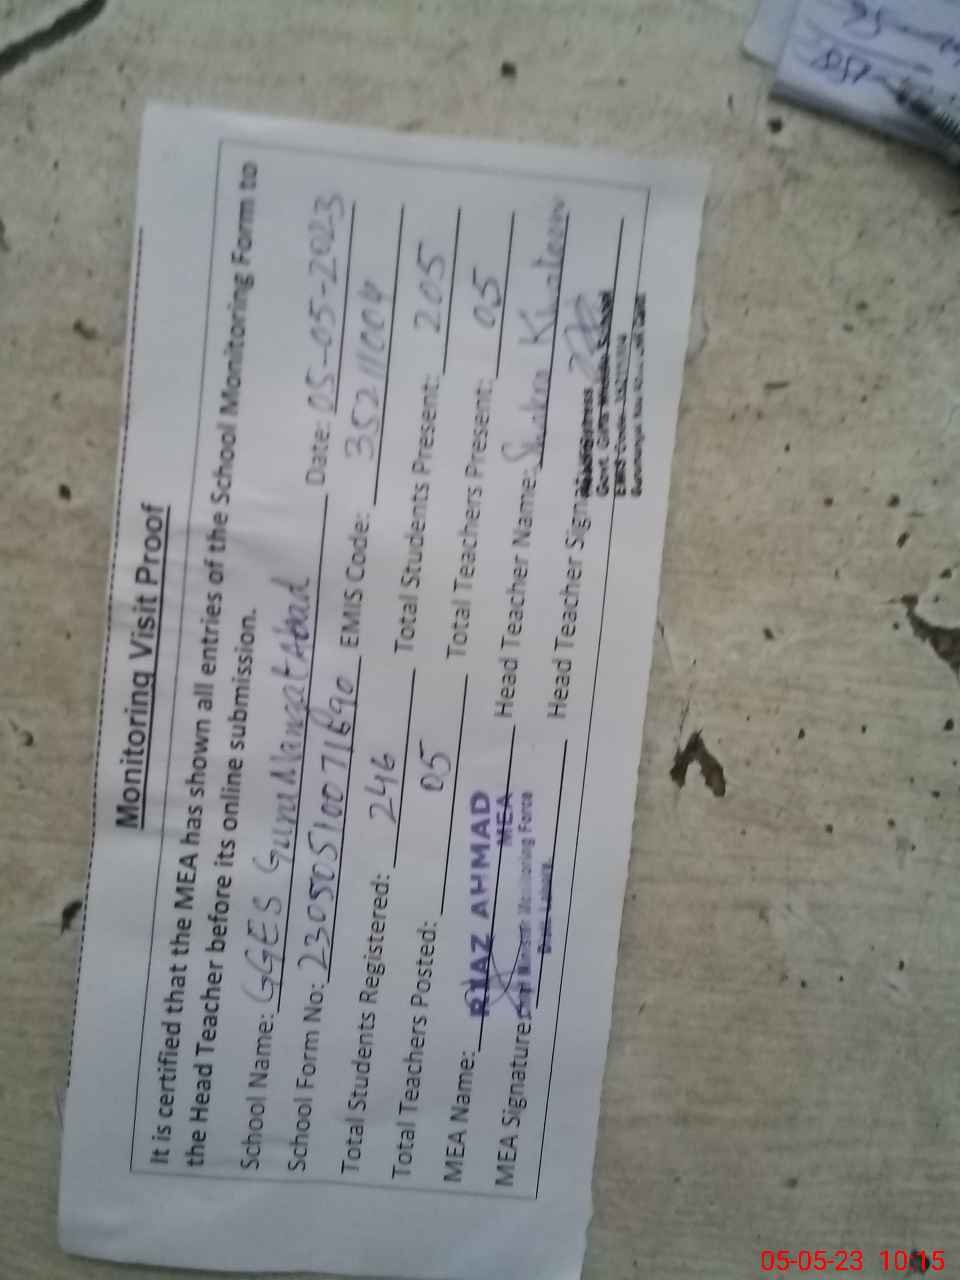 Monitoring Visit Proof
It is certified that the MEA has shown all entries of the School Monitoring Form to
the Head Teacher before its online submission.
School Name: GGES Guru Mangat Abad Date: 05-05-2023
School Form No: 23050510071690 EMIS Code: 35211004
Total Students Registered: 246 Total Students Present: 205
Total Teachers Posted: 05 Total Teachers Present: 05
MEA Name: RIAZ AHMAD Head Teacher Name:
MEA
MEA Signature: Head Teacher Signature
Chief Minister Monitoring Force
Distt. Lahore
Govt. Girls School
EMIS Code
05-05-23 10:15